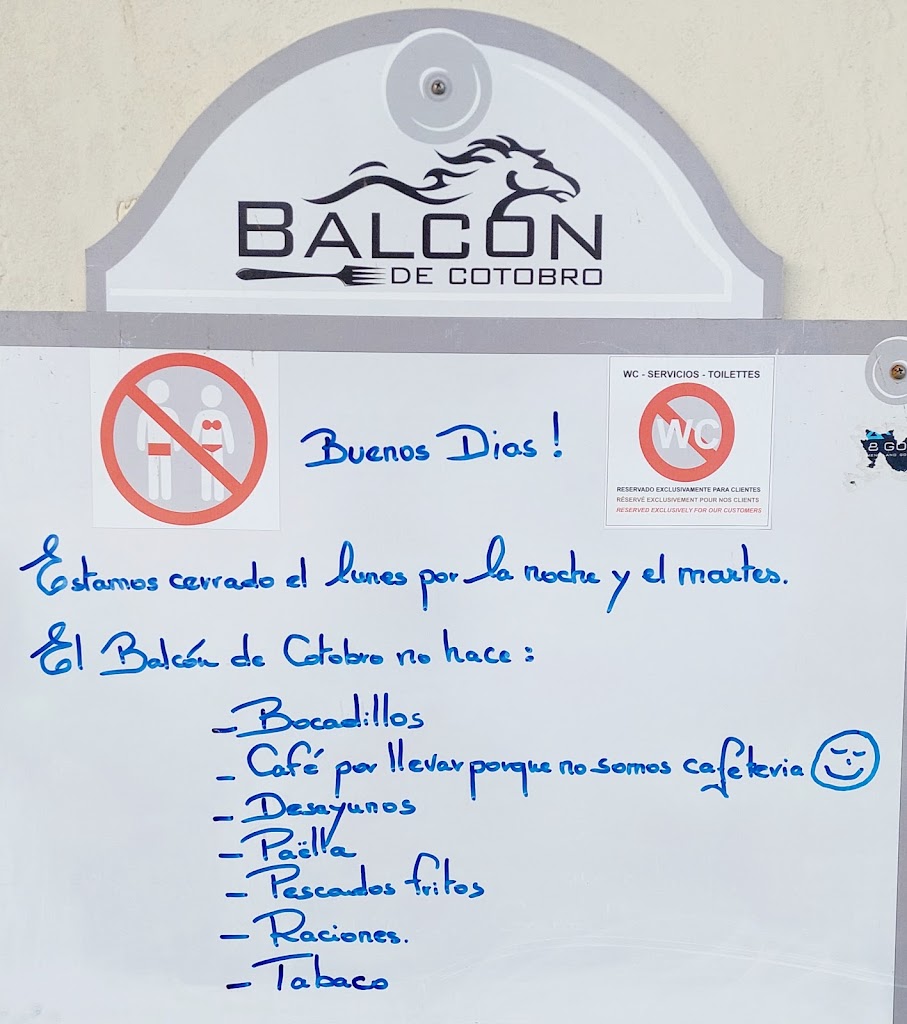 BALCÓN
DE COTOBRO
WC - SERVICIOS - TOILETTES
WC
RESERVADO EXCLUSIVAMENTE PARA CLIENTES
RÉSERVÉ EXCLUSIVEMENT POUR NOS CLIENTS
RESERVED EXCLUSIVELY FOR OUR CUSTOMERS
Buenos Dias !
Estamos cerrado el lunes por la noche y el martes.
El Balcón de Cotobro no hace :
- Bocadillos
- Café por llevar porque no somos cafeteria
- Desayunos
- Paëlla
- Pescados fritos
- Raciones.
- Tabaco